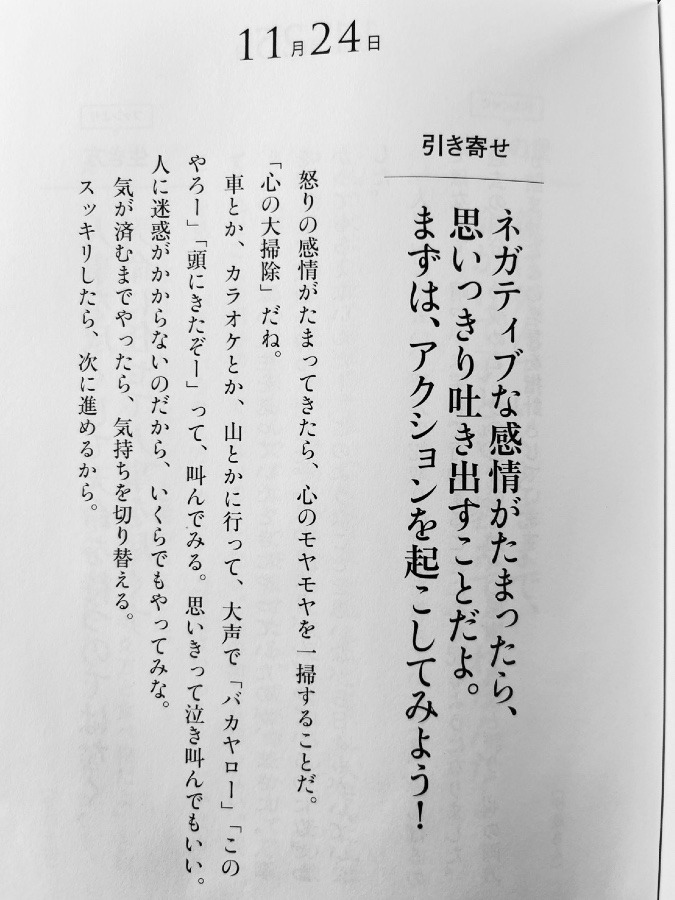 11月24日
引き寄せ
ネガティブな感情がたまったら、
思いっきり吐き出すことだよ。
まずは、アクションを起こしてみよう！
怒りの感情がたまってきたら、心のモヤモヤを一掃することだ。
「心の大掃除」だね。
車とか、カラオケとか、山とかに行って、大声で「バカヤロー」「この
やろー」「頭にきたぞー」って、叫んでみる。思いきって泣き叫んでもいい。
人に迷惑がかからないのだから、いくらでもやってみな。
気が済むまでやったら、気持ちを切り替える。
スッキリしたら、次に進めるから。